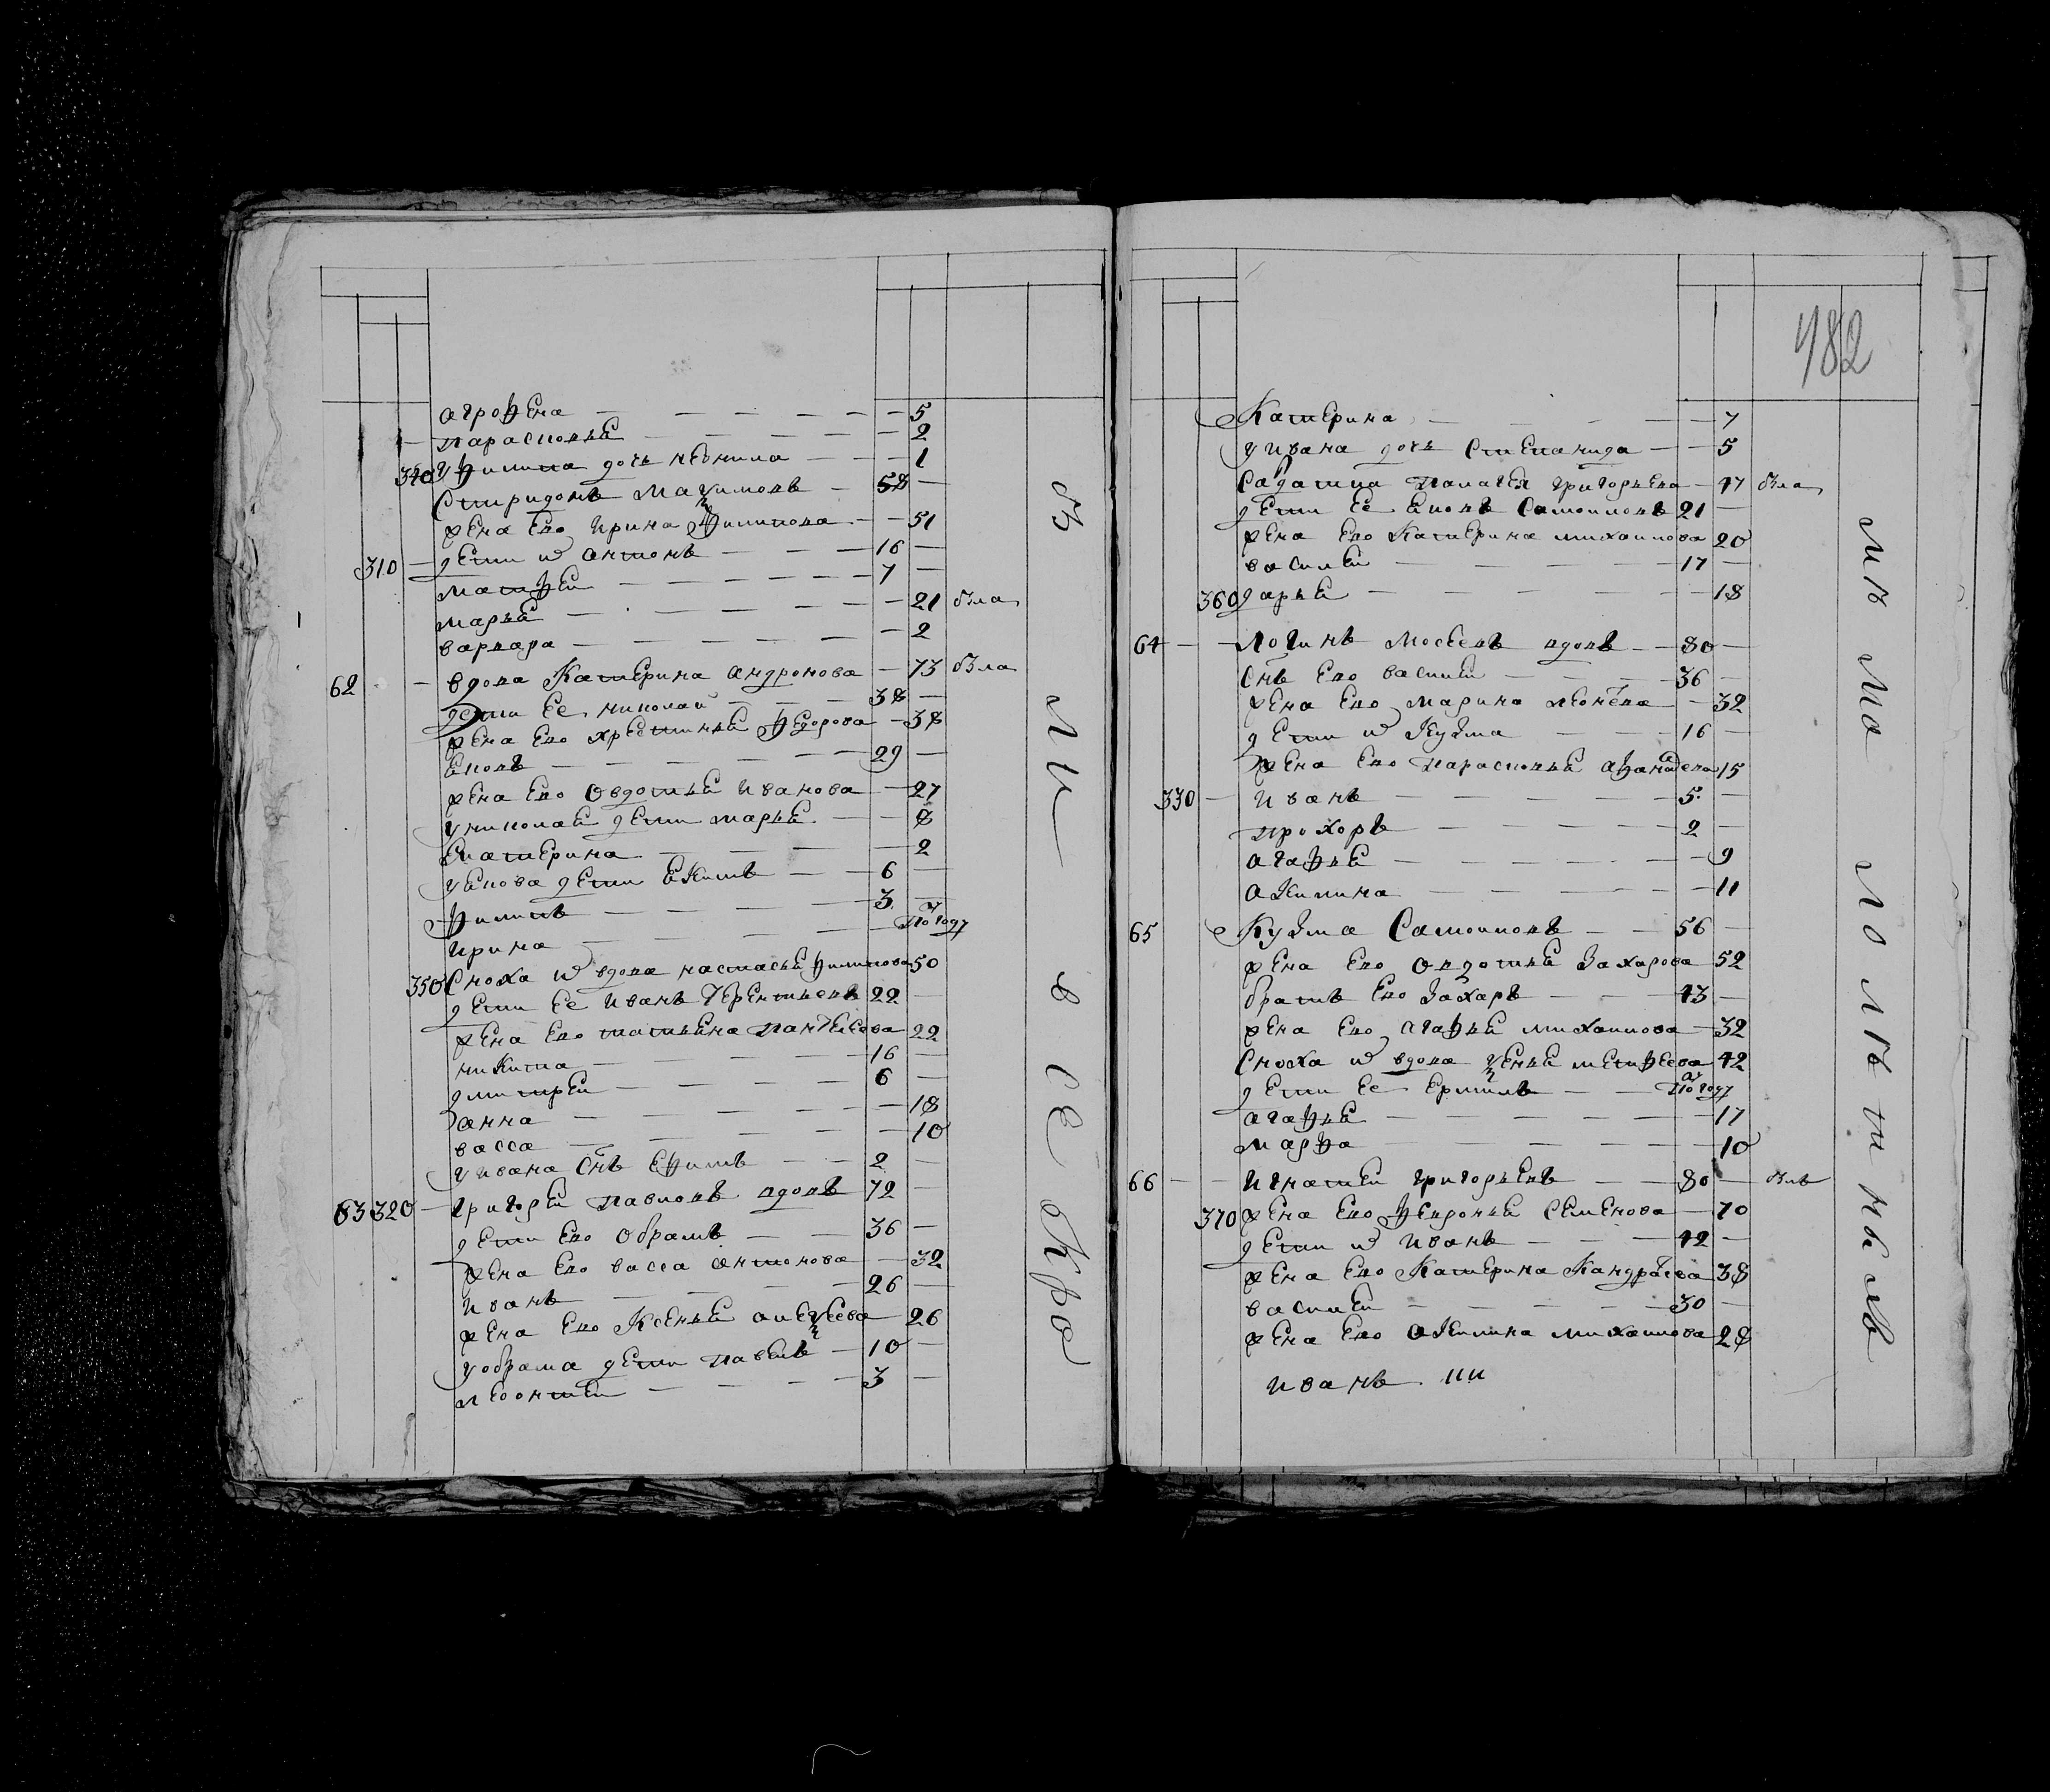 агрофена — 5
парасковья — 2
340 у филипа дочь невнила — 1
Спиридонъ Макимовъ — 58
жена Ево Ирина филипова — 51
310 — дети их антонъ — 16
матфеи — 7
марья — 21 бЗла
варвара — 2
62 — вдова Катерина андронова — 73 бЗла
дети Ее николаи — 38
жена Ево хрестинья федорова — 38
Яковъ — 29
жена Ево Овдотья Иванова — 27
у николая дети марья — 8
Екатерина — 2
у Якова дети Екимъ — 6
филипъ — 3
Ирина — Полгоду
350 Сноха их вдова настасья филипова 50
дети Ее Иванъ Терентьевъ 22
жена Ево татьяна пантелеева 22
никита — 16
дмитреи — 6
анна — 18
васса — 10
у Ивана Снъ Ефимъ — 2
63 320 — Григореи павловъ вдовъ 72
дети Ево Обрамъ — 36
жена Ево васса антонова — 32
Иванъ — 26
жена Ево Ксенья алексеева — 26
у обрама дети павелъ — 10
леонтеи — 3
бЗ ли всеокро
482
Катерина — 7
у Ивана дочь Степанида — 5
Салдатка Палагея григорьева — 47 бЗла
дети Ее Яковъ Самоиловъ 21
жена Ево Катерина михаилова 20
василеи — 17
360 дарья — 18
64 — Логинъ Мосеевъ вдовъ — 80
Снъ Ево василеи — 36
жена Ево марина леонтева — 32
дети их Кузма — 16
жена Ево парасковья афанасева 15
330 — Иванъ — 5
прохоръ — 2
агафья — 9
акилина — 11
65 Кузма Самоиловъ — 56
жена Ево Овдотья Захарова 52
братъ Ево Захаръ — 43
жена Ево агафья михаилова — 32
Сноха их вдова ксенья матфеева 42
дети Ее Ермилъ — Полгоду
агафья — 17
марфа — 10
66 — Игнатеи григорьевъ — 80 — бЗлъ
370 жена Ево февронья Семенова — 70
дети их Иванъ — 42
жена Ево Катерина Кандратева 38
василеи — 30
жена Ево акилина михаилова 28
Иванъ ИИ